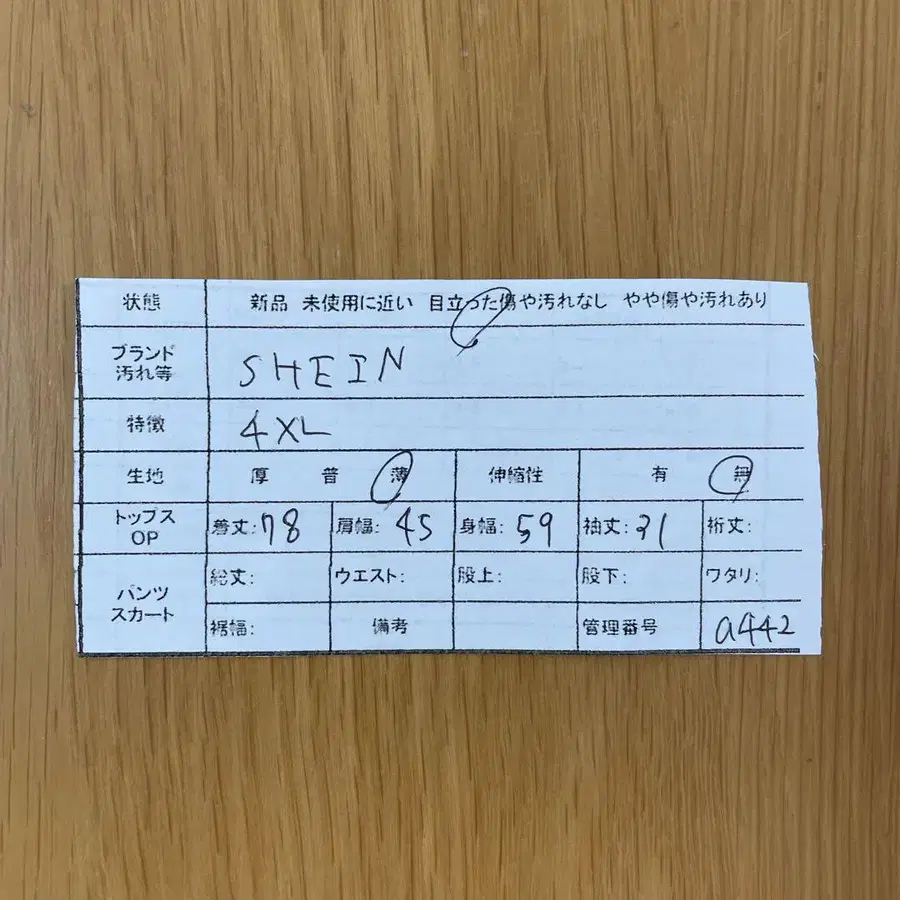 状態 新品 未使用に近い 目立った傷や汚れなし やや傷や汚れあり
ブランド
汚れ等 SHEIN
特徴 4XL
生地 厚 普 薄 伸縮性 有 無
トップス
OP 着丈:78 肩幅:45 身幅:59 袖丈:31 裄丈:
パンツ
スカート 総丈: ウエスト: 股上: 股下: ワタリ:
裾幅: 備考 管理番号 a442